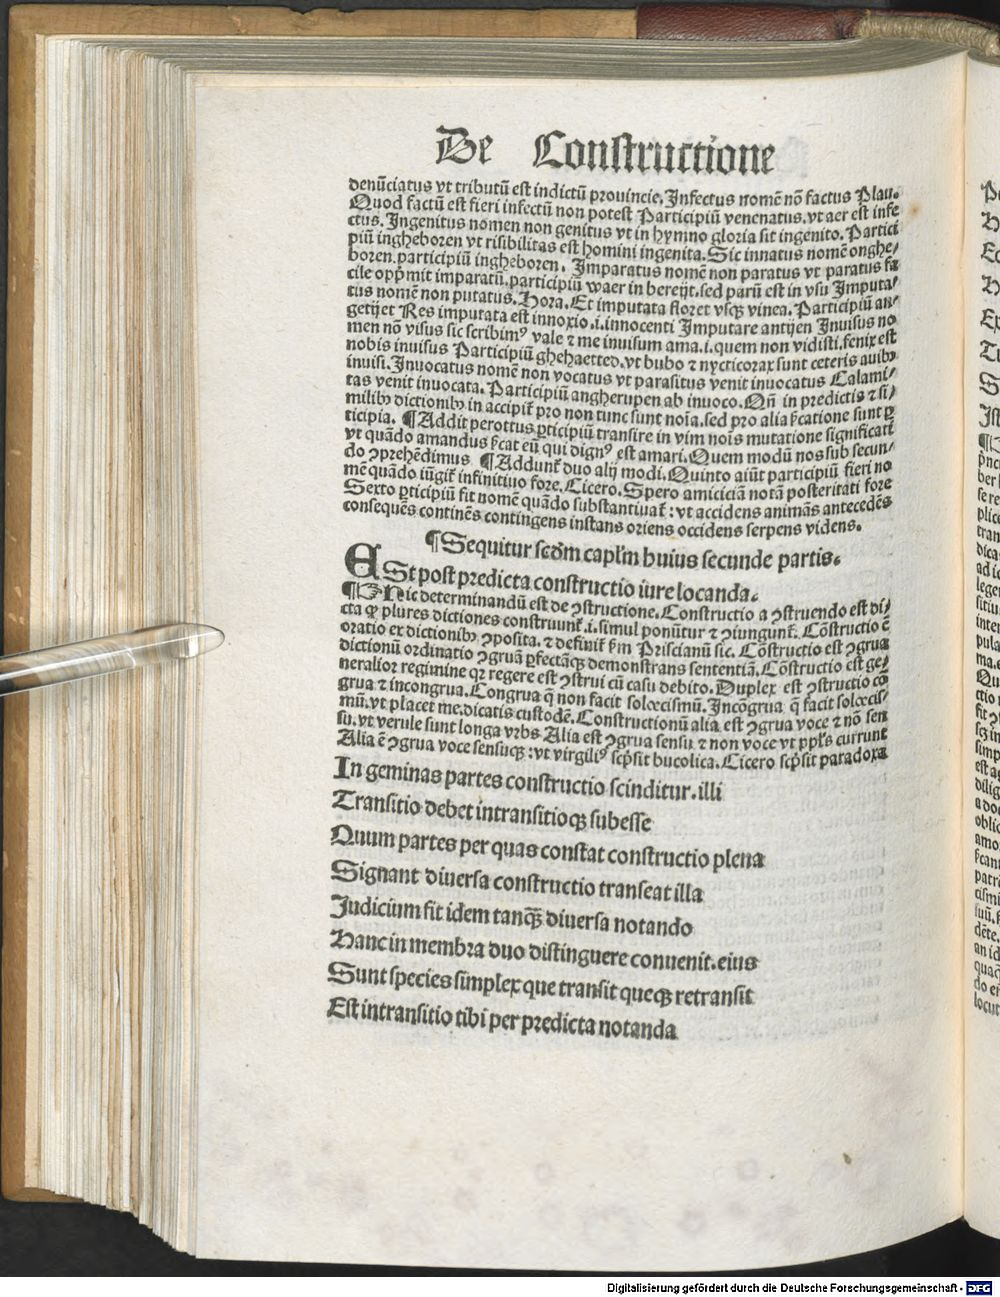 De Constructione
denūciatus vt tributū est indictū prouincie. Infectus nomē nō factus Plau.
Quod factū est fieri infectū non potest Participiū venenatus. vt aer est infe
ctus. Ingenitus nomen non genitus vt in hymno gloria sit ingenito. Partici
piū ingheboren vt risibilitas est homini ingenita. Sic innatus nomē onghe/
boren. participiū ingheboren. Imparatus nomē non paratus vt paratus fa
cile opp̄mit imparatū. participiū waer in bereijt. sed parū est in vsu Imputa/
tus nomē non putatus. Hora. Et imputata floret vsqꝫ vinea. Participiū an/
getijet Res imputata est innoxio .i. innocenti Imputare antijen Inuisus no
men nō visus sic scribimꝰ vale ⁊ me inuisum ama .i. quem non vidisti. fenix est
nobis inuisus Participiū ghehaetted. vt bubo ⁊ nycticorax sunt ceteris auibꝫ
inuisi. Inuocatus nomē non vocatus vt parasitus venit inuocatus Calami/
tas venit inuocata. Participiū angherupen ab inuoco. Qn̄ in predictis ⁊ si/
milibꝫ dictionibꝫ in accipit᷑ pro non tunc sunt noīa. sed pro alia sc̄atione sunt ꝑ
ticipia. ¶ Addit perottus ꝑticipiū transire in vim noīs mutatione significati
vt quādo amandus sc̄at eū qui dignꝰ est amari. Quem modū nos sub secun/
do ꝯprehēdimus ¶ Addunt᷑ duo alij modi. Quinto aiūt participiū fieri no
mē quādo iūgit᷑ infinitiuo fore. Cicero. Spero amiciciā notā posteritati fore
Sexto ꝑticipiū fit nomē quādo substantiuat᷑ : vt accidens animās antecedēs
consequēs continēs contingens instans oriens occidens serpens videns.
¶ Sequitur scd̄m capl̄m huius secunde partis.
ESt post predicta constructio iure locanda.
¶ Hic determinandū est de ꝯstructione. Constructio a ꝯstruendo est di/
cta qꝛ plures dictiones construunt᷑ .i. simul ponūtur ⁊ ꝯiungunt᷑. Cōstructio ē
oratio ex dictionibꝫ ꝯposita. ⁊ definit᷑ ẜm Priscianū sic. Cōstructio est ꝯgrua
dictionū ordinatio ꝯgruā ꝑfectāqꝫ demonstrans sententiā. Cōstructio est ge/
neralior regimine qꝛ regere est ꝯstrui cū casu debito. Duplex est ꝯstructio cō
grua ⁊ incongrua. Congrua q̄ non facit solœcismū. Incōgrua q̄ facit solœcis/
mū. vt placet me. dicatis custodē. Constructionū alia est ꝯgrua voce ⁊ nō sen
su. vt verule sunt longa vrbs Alia est ꝯgrua sensu ⁊ non voce vt ppl̄s currunt
Alia ē ꝯgrua voce sensuqꝫ : vt virgiliꝰ scp̄sit bucolica. Cicero scp̄sit paradoxa
In geminas partes constructio scinditur. illi
Transitio debet intransitioqꝫ subesse
Quum partes per quas constat constructio plena
Signant diuersa constructio transeat illa
Judicium fit idem tanqꝫ̄ diuersa notando
Hanc in membra duo distinguere conuenit. eius
Sunt species simplex que transit queqꝫ retransit
Est intransitio tibi per predicta notanda
Digitalisierung gefördert durch die Deutsche Forschungsgemeinschaft - DFG